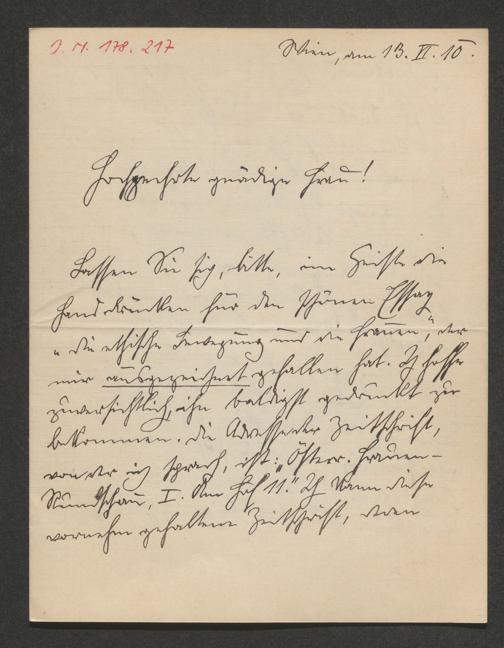 J. N. 178.217
Wien, am 13. VI. 10.
Hochgeehrte gnädige Frau!
Lassen Sie sich, bitte, im Geiste die
Hand drücken für den schönen Essay
"die ethische Bewegung und die Frauen", der
mir ausgezeichnet gefallen hat. Ich hoffe
zuversichtlich, ihn baldigst gedruckt zu
bekommen. Die Adresse der Zeitschrift,
von der ich sprach, ist: "Österr. Frauen-
Rundschau, I. Am Hof 11." Ich kann diese
vornehm gehaltene Zeitschrift, deren